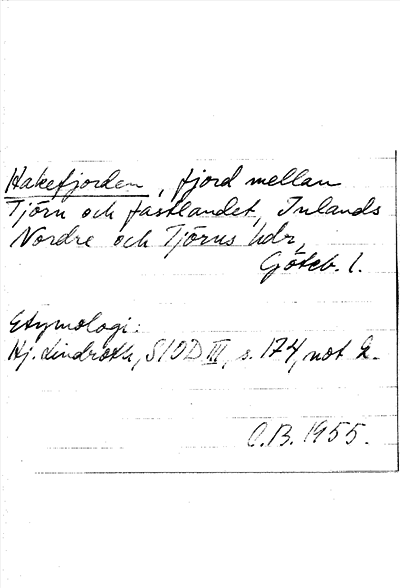 Hakefjorden, fjord mellan
Tjörn och fastlandet, Inlands
Nordre och Tjörns hdr,
Göteb. l.
Etymologi:
Hj. Lindroth, SIOD III, s. 174, not 2.
C.B. 1955.